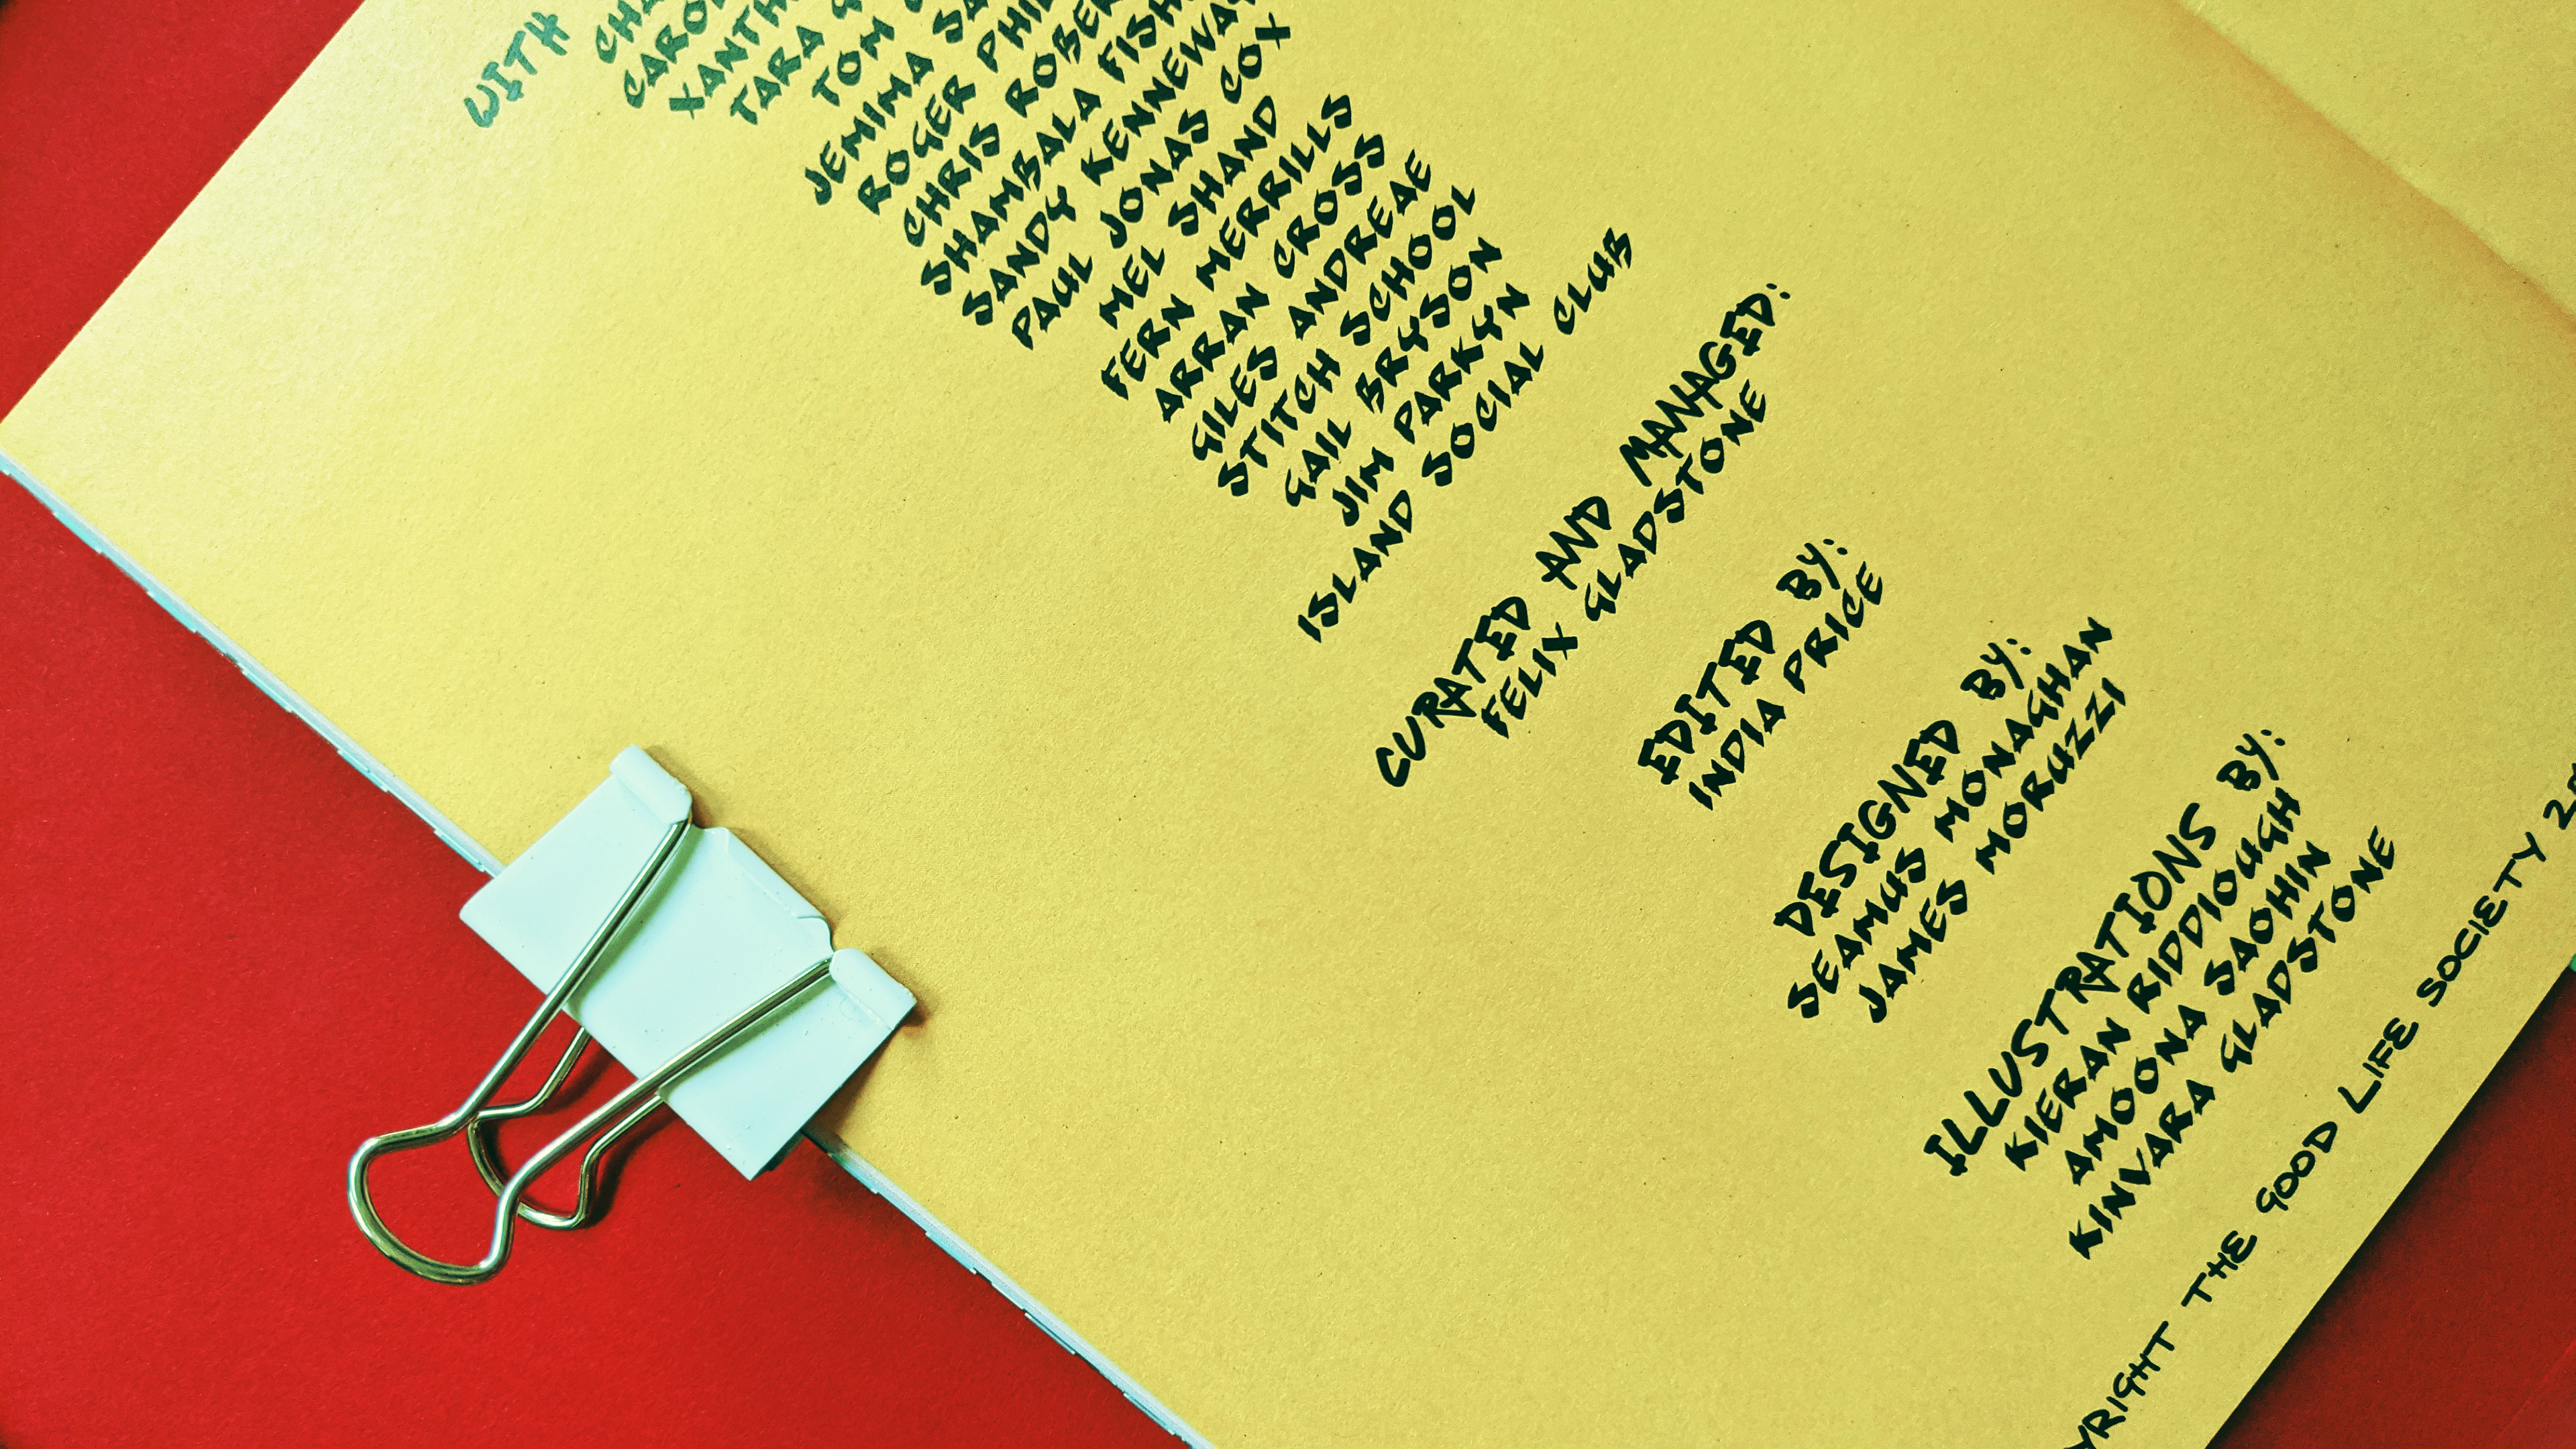 WITH
TARA
TOM
JEMIMA
ROGER
CHRIS
SHAMBALA
SANDY
PAUL JONAS COX
MEL SHAND
FERN MERRILLS
ARRAN CROSS
GILES ANDREAE
STITCH SCHOOL
GAIL BRYSON
JIM PARKYN
ISLAND SOCIAL CLUB
CURATED AND MANAGED:
FELIX GLADSTONE
EDITED BY:
INDIA PRICE
DESIGNED BY:
SEAMUS MONAGHAN
JAMES MORUZZI
ILLUSTRATIONS BY:
KIERAN RIDDIOUGH
AMOONA SAOHIN
KINVARA GLADSTONE
THE GOOD LIFE SOCIETY